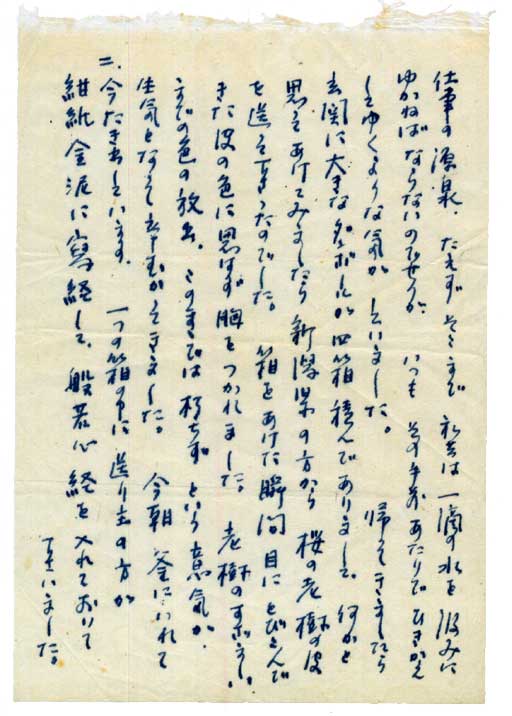 仕事の源泉、たえずそこまで私共は一滴の水を汲みに
ゆかねばならないのでせうが いつも その手前あたりでひきかへ
してゆくような気がしていました。 帰ってきましたら
玄関に大きな ダンボールが 四箱 積んでありまして、何かと
思ってあけてみましたら 新潟県の方から 桜の老樹の皮
を送って下さったのでした。 箱をあけた瞬間 目にとびこんで
きた皮の色に思はず胸をつかれました。 老樹のすさまじい
までの色の放出。 このままでは 朽ちず という意気が、
生気となって 今朝 釜にいれて
二、今たき出しています。 一つの箱の中に 送り主の方が
紺紙金泥に寫経して、般若心経を入れておいて
下さいました。